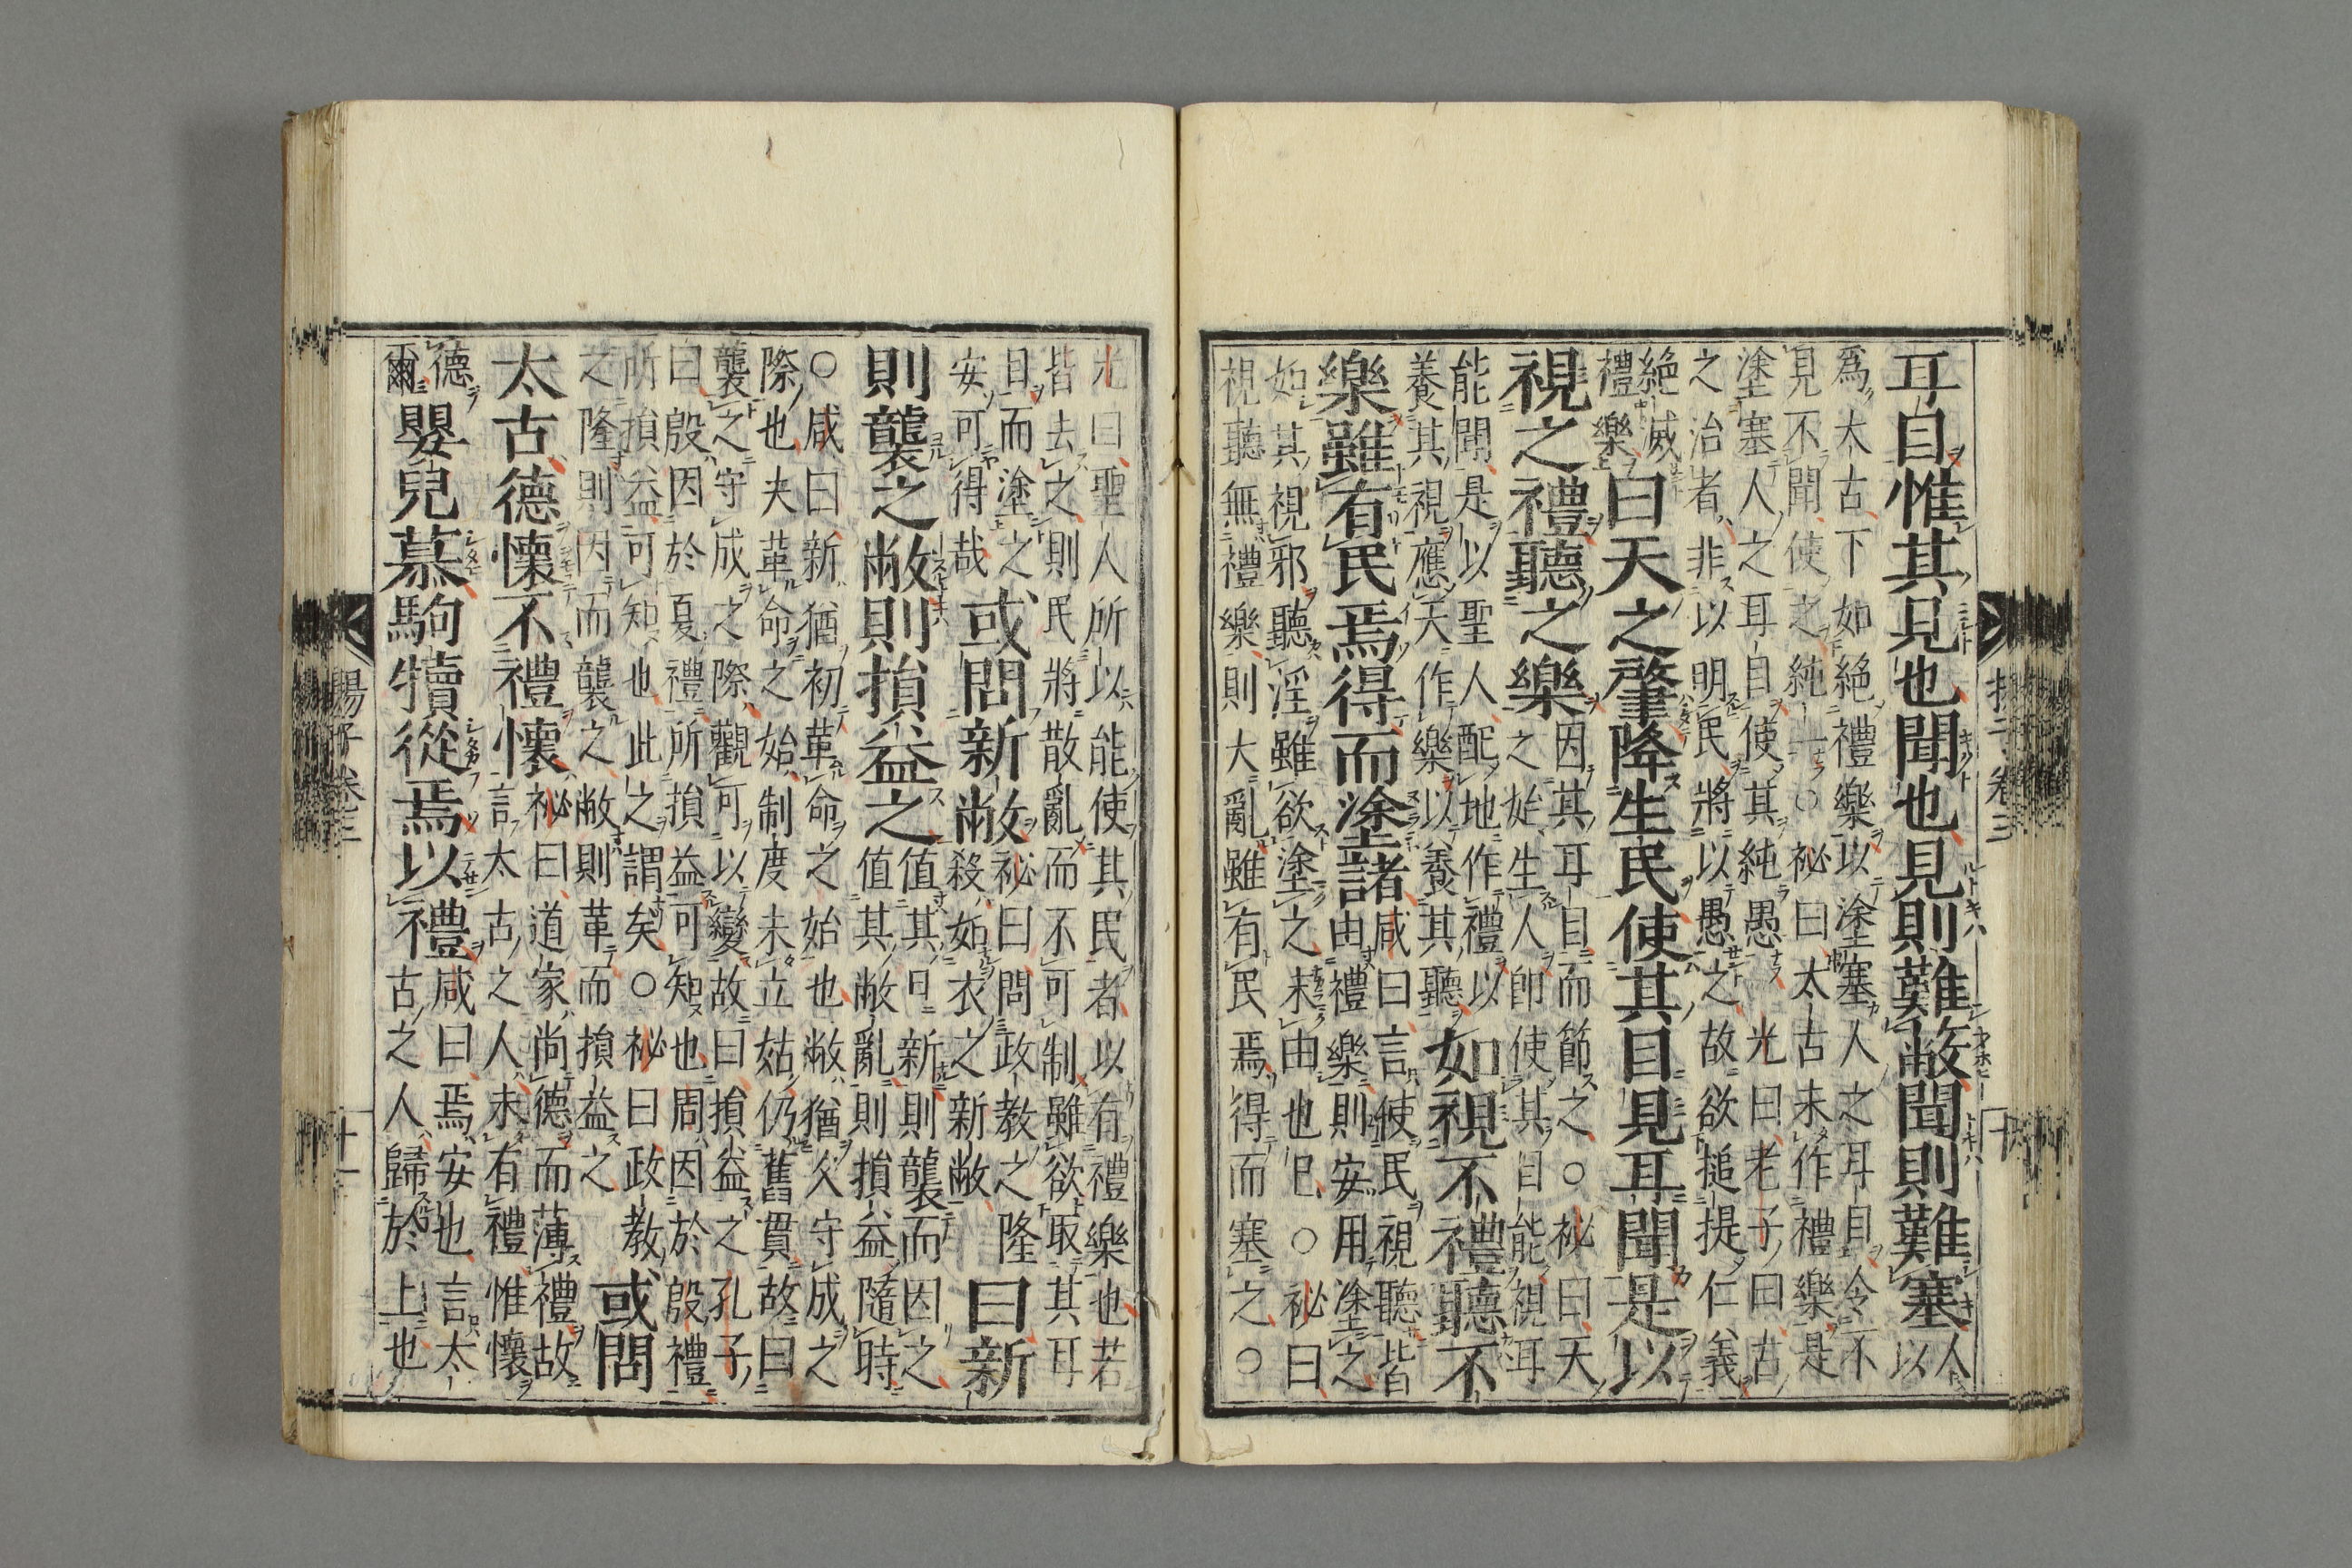 耳目惟其見也聞也見則難敝聞則難塞人以
爲太古下如絶禮樂以塗塞人之耳目令不
見不聞使之純一○祕曰太古未作禮樂是
塗塞人之耳目使其純愚光曰老子曰古
之治者非以明民將以愚之故欲搥提仁義
絶滅禮樂曰天之肇降生民使其目見耳聞是以
視之禮聽之樂因其耳目而節之○祕曰天之始生人即使其目能視耳
能聞是以聖人配地作禮以養其視應天作樂以養其聽如視不禮聽不
樂雖有民焉得而塗諸咸曰言使民視聽皆由禮樂則安用塗之
如其視邪聽淫雖欲塗之末由也已○祕曰
視聽無禮樂則大亂雖有民焉得而塞之○
光曰聖人所以能使其民者以有禮樂也若
皆去之則民將散亂而不可制雖欲取其耳
目而塗之安可得哉或問新敝祕曰問政教之隆殺如衣之新敝曰新
則襲之敝則損益之值其日新則襲而因之值其敝亂則損益隨時
○咸曰新猶初革命之始也敝猶久守成之
際也夫革命之始制度未立姑仍舊貫故曰
襲之守成之際觀可以變故曰損益之孔子
曰殷因於夏禮所損益可知也周因於殷禮
所損益可知也此之謂矣○祕曰政教
之隆則因而襲之敝則革而損益之或問
太古德懷不禮懷祕曰道家尚德而薄禮故言太古之人未有禮惟懷
德爾嬰兒慕駒犢從焉以禮咸曰焉安也言太古之人歸於上也
揚子卷三
十
揚子卷三
十一